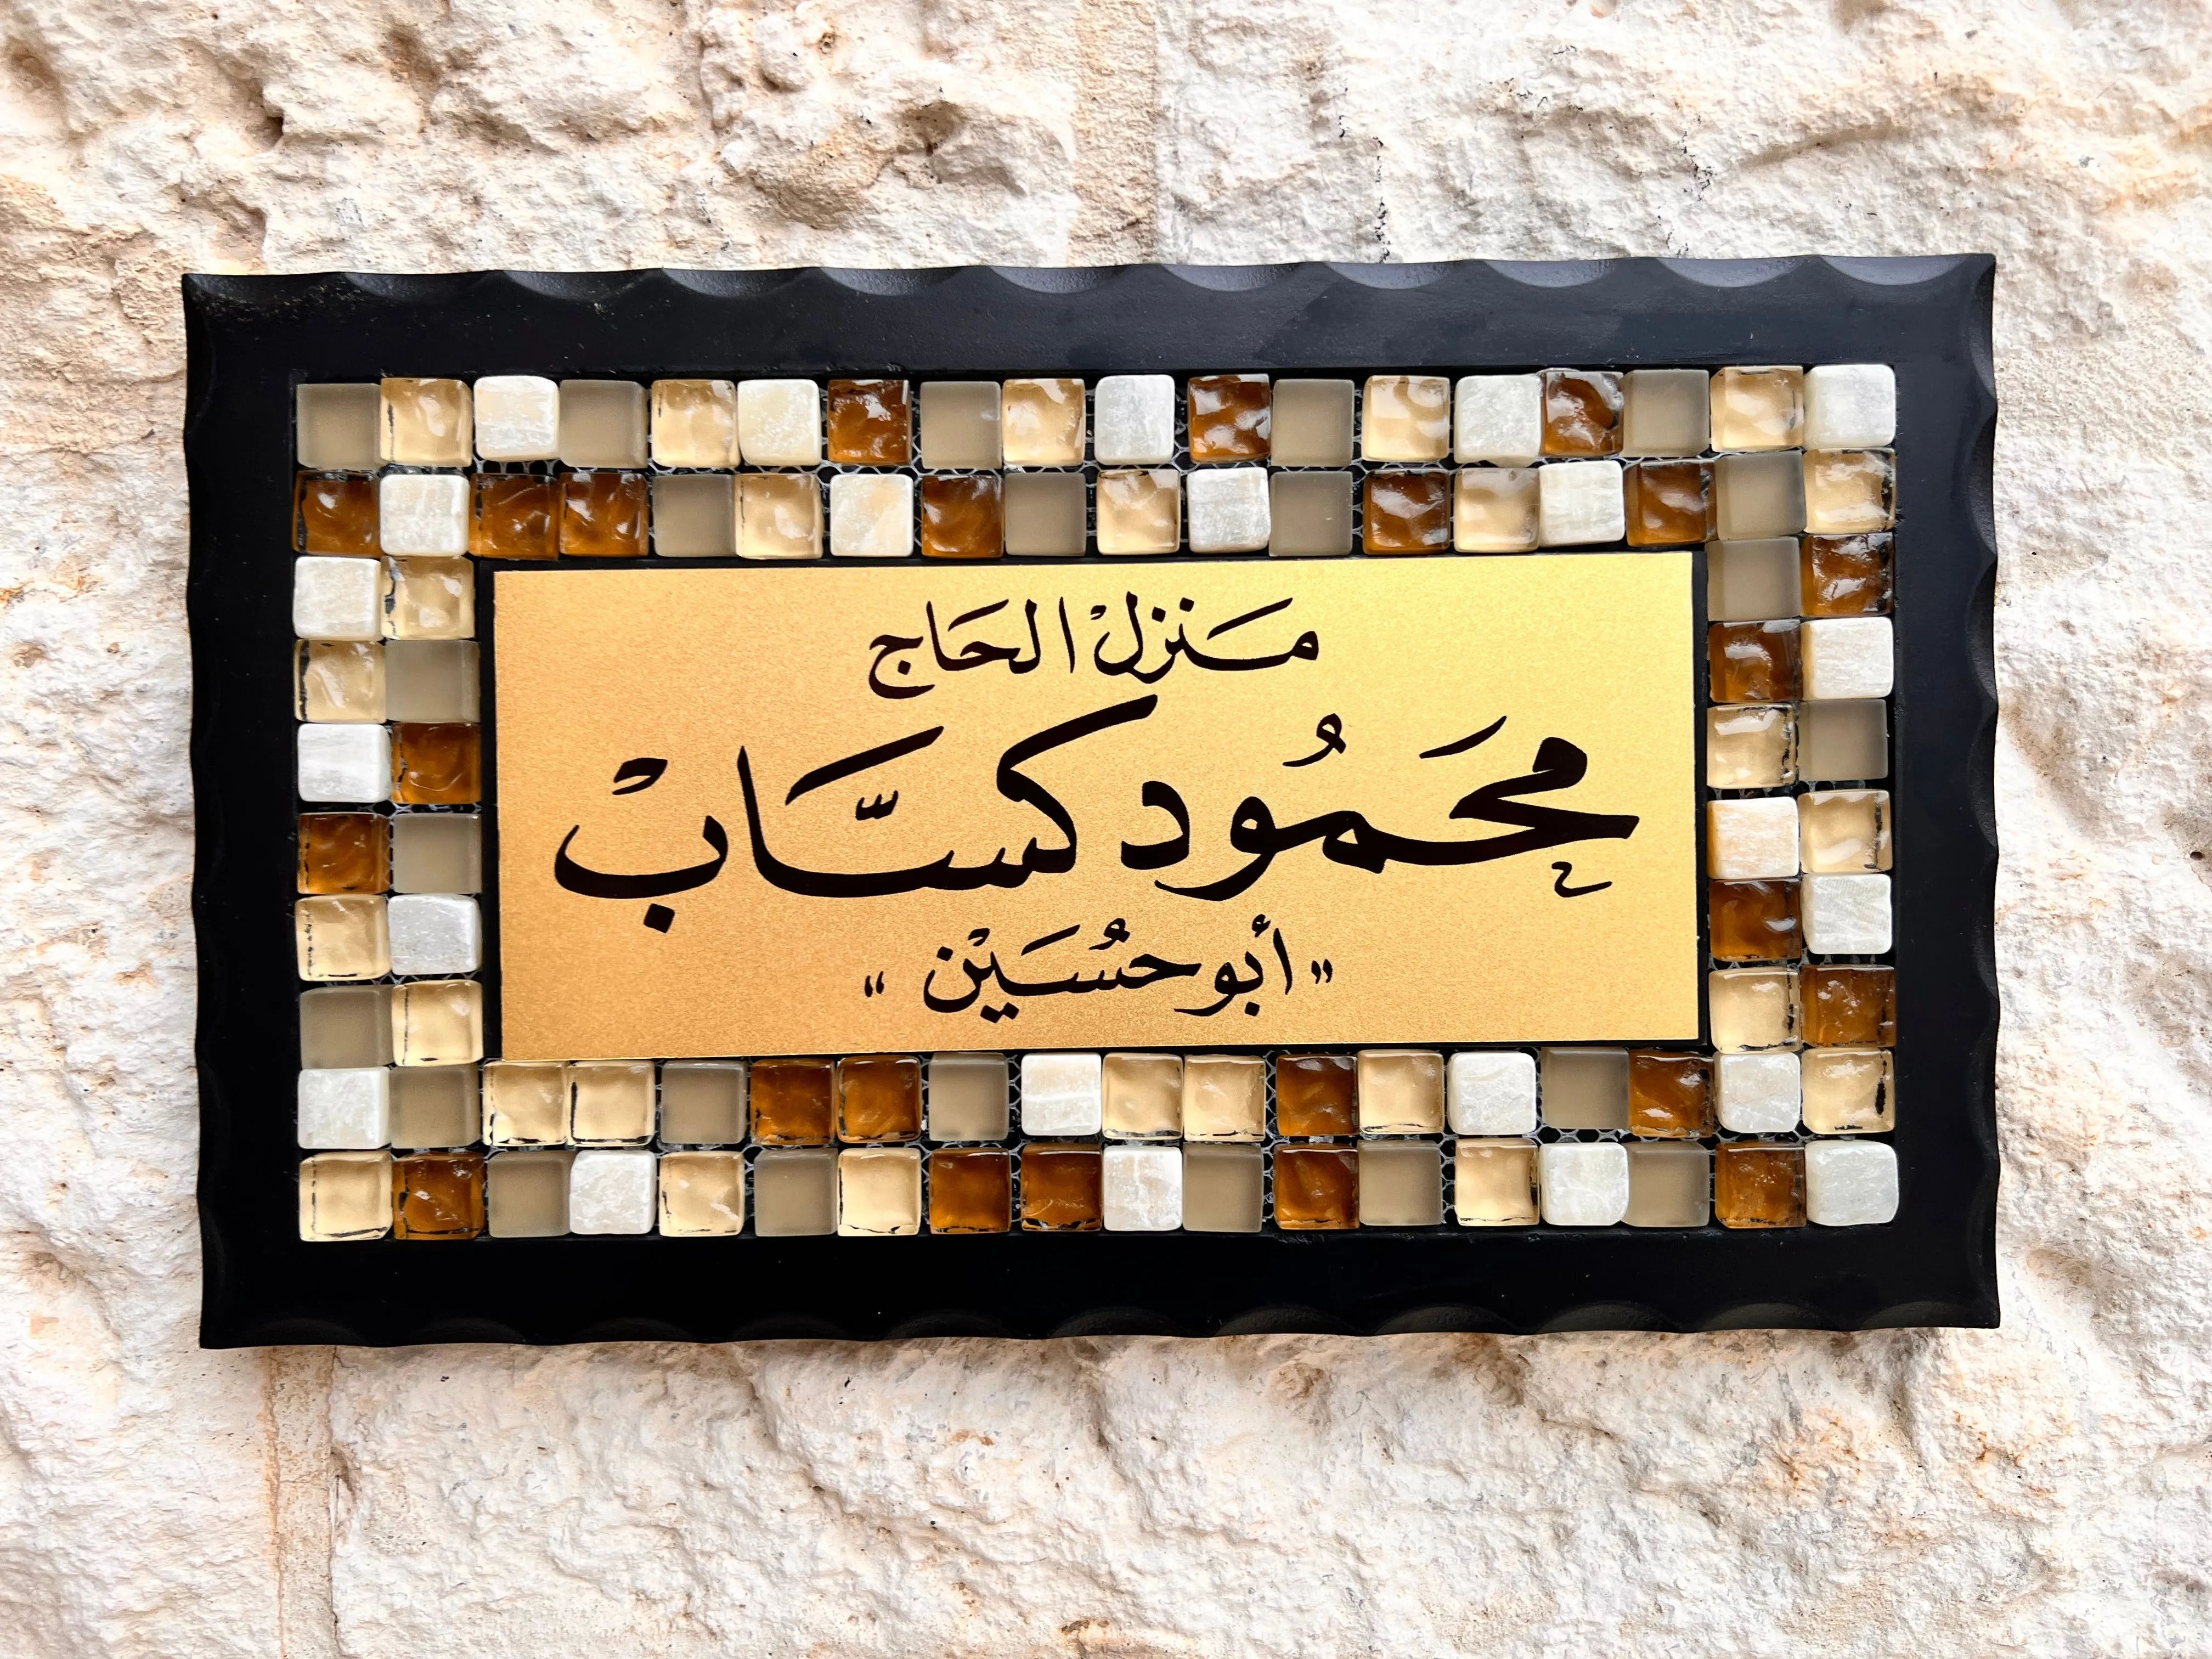 مَنزلْ الحَاج
محَمُود كسَّابْ
"أبو حُسَيْن"